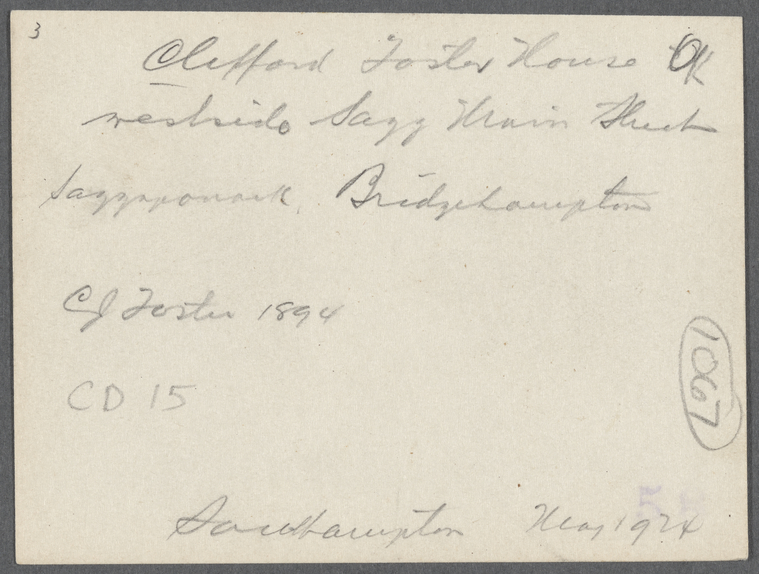 3
Clifford Foster House OK
westside Sagg Main Street
Saggaponack, Bridgehampton
CJ Foster 1894
CD 15
1067
Southampton May 1924